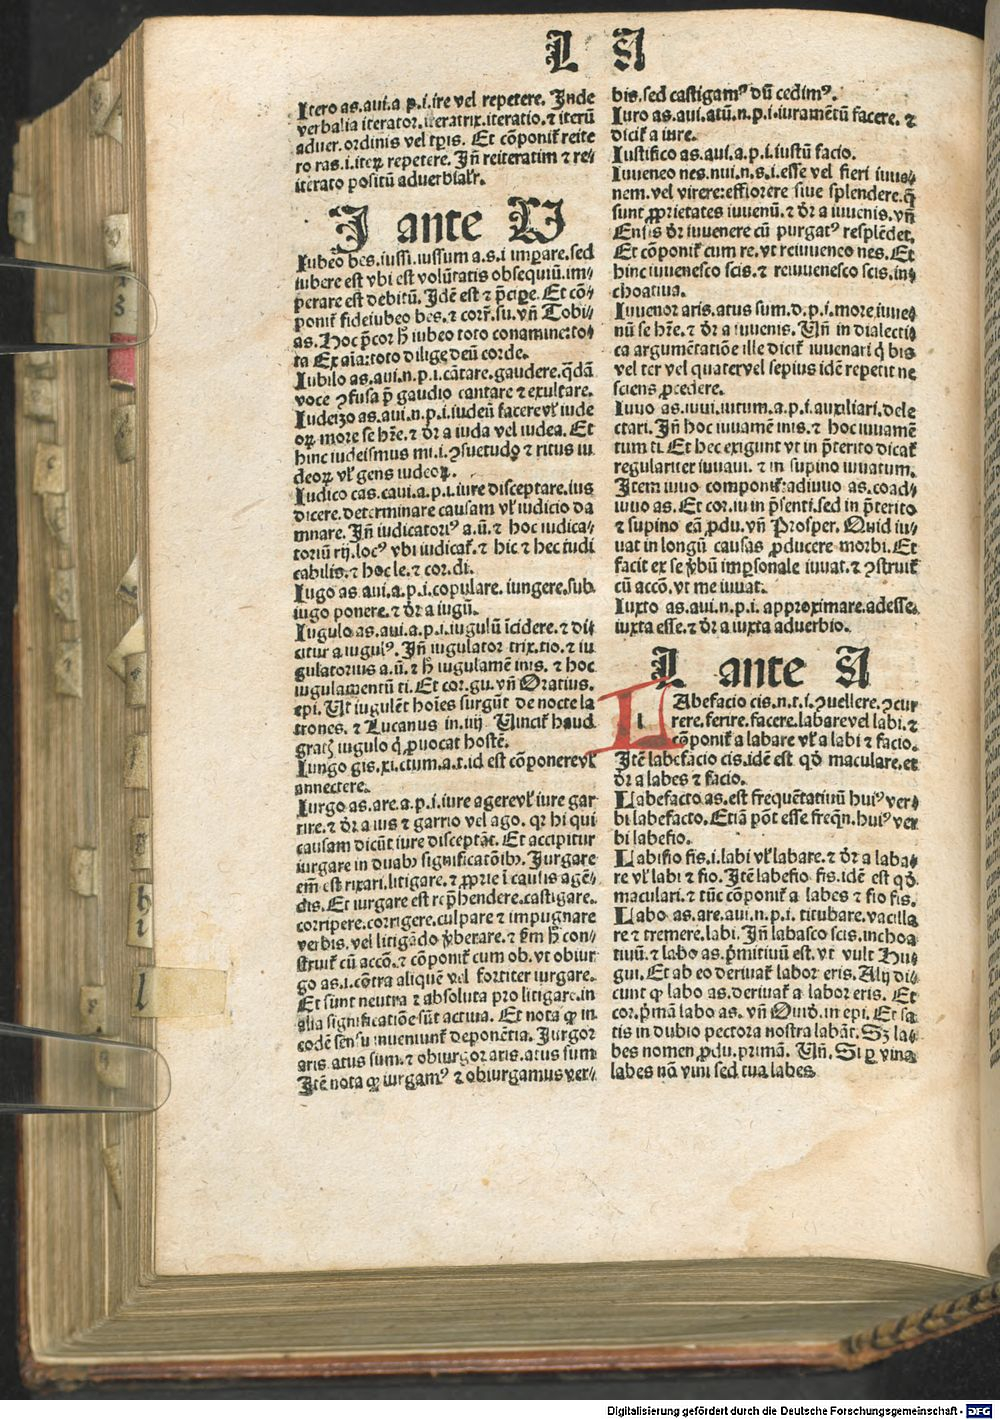 L A
Itero as.aui.a p.i.ire vel repetere. Inde
verbalia iterator.iteratrix.iteratio.⁊ iterū
aduer.ordinis vel tꝑis. Et cōponit᷑ reite
ro ras.i.iteꝝ repetere. Iñ reiteratim ⁊ rei
iterato positū aduerbialr̄.
I ante U
Iubeo bes.iussi.iussum a.s.i imꝑare.sed
iubere est vbi est volūtatis obsequiū.im⸗
perare est debitū. Idē est ⁊ p̄cipe. Et cō⸗
ponit᷑ fideiubeo bes.⁊ corr̄.su.vñ Tobi⸗
as. Hoc p̄cor h̄ iubeo toto conamine:to⸗
ta Ex aīa:toto dilige deū corde.
Iubilo as.aui.n.p.i.cātare.gaudere.q̄dā
voce ꝯfusa p̄ gaudio cantare ⁊ exultare.
Iudeizo as.aui.n.p.i.iudeū facere vl̓ iude
oꝝ more se hr̄e.⁊ dr̄ a iuda vel iudea. Et
hinc iudeismus mi.i.ꝯsuetudo ⁊ ritus iu
deoꝝ vl̓ gens iudeoꝝ.
Iudico cas.caui.a.p.i.iure disceptare.ius
dicere.determinare causam vl̓ iudicio da
mnare. Iñ iudicatoriꝰ a.ū.⁊ hoc iudica⸗
toriū rij.locꝰ vbi iudicat᷑.⁊ hic ⁊ hec iudi
cabilis.⁊ hoc le.⁊ cor.di.
Iugo as aui.a.p.i.copulare.iungere.sub
iugo ponere.⁊ dr̄ a iugū.
Iugulo as.aui.a.p.i.iugulū īcidere.⁊ di⸗
citur a iugulꝰ. Iñ iugulator trix.tio.⁊ iu
gulatorius a.ū.⁊ h̄ iugulamē inis.⁊ hoc
iugulamentū ti. Et cor.gu.vñ Oratius.
epi. Ut iugulēt hoīes surgūt de nocte la
trones.⁊ Lucanus in.iij Uincit᷑ haud
gratꝫ iugulo q̄ ꝓuocat hostē.
Iungo gis.xi.ctum.a.t.id est cōponere vl̓
annectere.
Iurgo as.are.a.p.i.iure agere vl̓ iure gar
rire.⁊ dr̄ a ius ⁊ garrio vel ago. qꝛ hi qui
causam dicūt iure disceptāt. Et accipitur
iurgare in duabꝰ significatōibꝰ. Iurgare
em̄ est rixari.litigare.⁊ ꝓprie ī causis agē⸗
dis. Et iurgare est rep̄hendere.castigare.
corripere.corrigere.culpare ⁊ impugnare
verbis.vel litigādo v̓berare.⁊ s̄m h̄ con⸗
struit᷑ cū accō.⁊ cōponit᷑ cum ob.vt obiur
go as.i.cōtra aliquē vel fortiter iurgare.
Et sunt neutra ⁊ absoluta pro litigare.in
alia significatiōe sūt actiua. Et nota ꝙ in
eodē sensu inueniunt᷑ deponētia. Iurgor
aris.atus sum.⁊ obiurgor aris.atus sum
Itē nota ꝙ iurgamꝰ ⁊ obiurgamus ver⸗
bis.sed castigamꝰ dū cedimꝰ.
Iuro as.aui.atū.n.p.i.iuramētū facere.⁊
dicit᷑ a iure.
Iustifico as.aui.a.p.i.iustū facio.
Iuueneo nes.nui.n.s.i.esse vel fieri iuue⸗
nem.vel virere:efflorere siue splendere.q̄
sunt ꝓprietates iuuenū.⁊ dr̄ a iuuenis.vñ
Ensis dr̄ iuuenere cū purgatꝰ resplēdet.
Et cōponit᷑ cum re.vt reiuueneo nes. Et
hinc iuuenesco scis.⁊ reiuuenesco scis.in⸗
choatiua.
Iuuenor aris.atus sum.d.p.i.more iuue⸗
nū se hr̄e.⁊ dr̄ a iuuenis. Uñ in dialecti⸗
ca argumētatiōe ille dicit᷑ iuuenari q̄ bis
vel ter vel quater vel sepius idē repetit ne
sciens ꝓcedere.
Iuuo as.iuui.iutum.a.p.i.auxiliari.dele
ctari. Iñ hoc iuuamē inis.⁊ hoc iuuamē
tum ti. Et hec exigunt vt in p̄terito dicat᷑
regulariter iuuaui.⁊ in supino iuuatum.
Item iuuo componit᷑:adiuuo as.coad⸗
iuuo as. Et cor.iu in p̄senti.sed in p̄terito
⁊ supino eā ꝓdu.vñ Prosper. Quid iu⸗
uat in longū causas ꝓducere morbi. Et
facit ex se v̓bū imꝑsonale iuuat.⁊ ꝯstruit᷑
cū accō.vt me iuuat.
Iuxto as.aui.n.p.i.approximare.adesse.
iuxta esse.⁊ dr̄ a iuxta aduerbio.
L ante A
LAbefacio cis.n.t.i.ꝯuellere.ꝯcur
rere.ferire.facere.labare vel labi.⁊
cōponit᷑ a labare vl̓ a labi ⁊ facio.
Itē labefacio cis.idē est qd̓ maculare.et
dr̄ a labes ⁊ facio.
Labefacto as.est frequētatiuū huiꝰ ver⸗
bi labefacto. Etiā pōt esse freqn̄.huiꝰ ver
bi labefio.
Labifio fis.i.labi vl̓ labare.⁊ dr̄ a laba⸗
re vl̓ labi ⁊ fio. Itē labefio fis.idē est qd̓
maculari.⁊ tūc cōponit᷑ a labes ⁊ fio fis.
Labo as.are.aui.n.p.i.titubare.vacilla
re ⁊ tremere.labi. Iñ labasco scis.inchoa
tiuū.⁊ labo as.p̄mitiuū est.vt vult Hu⸗
gui. Et ab eo deriuat᷑ labor eris. Alij di⸗
cunt ꝙ labo as.deriuat᷑ a labor eris. Et
cor.p̄mā labo as.vñ Ouid̓.in epi. Et sa⸗
tis in dubio pectora nostra labāt. Sꝫ la⸗
bes nomen ꝓdu.primā. Uñ. Si ꝑ vina
labes nō vini sed tua labes
3
h
i
l
Digitalisierung gefördert durch die Deutsche Forschungsgemeinschaft - DFG